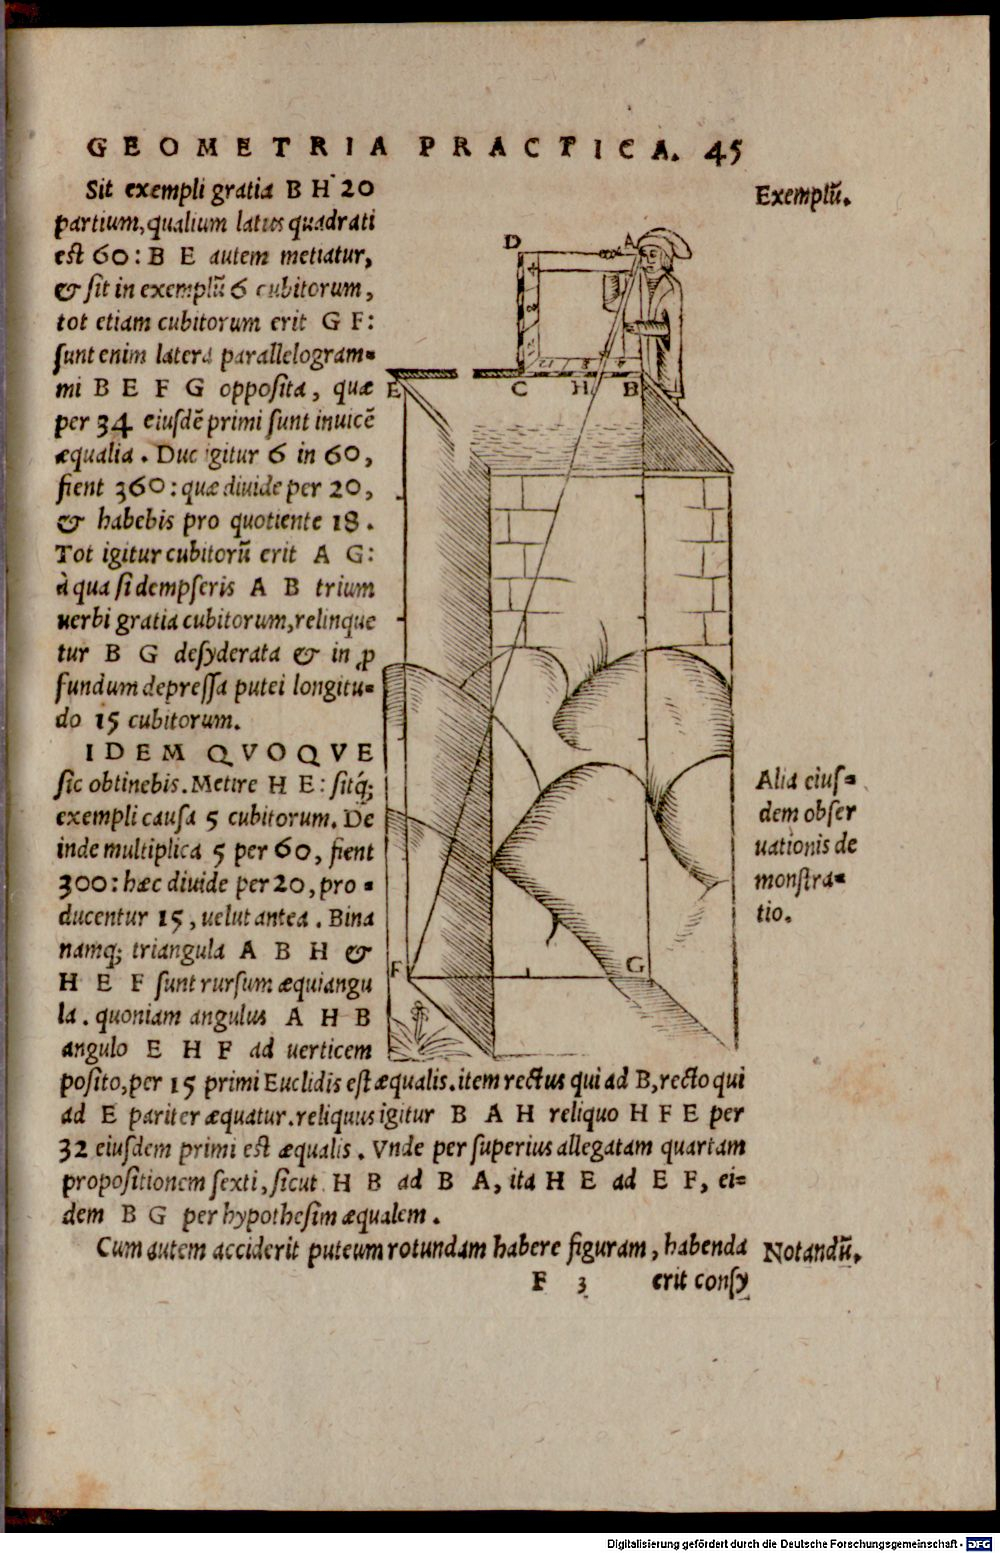 GEOMETRIA PRACTICA. 45
Sit exempli gratia B H 20
partium, qualium latus quadrati
est 60: B E autem metiatur,
& sit in exemplũ 6 cubitorum,
tot etiam cubitorum erit G F:
sunt enim latera parallelogram=
mi B E F G opposita, quæ
per 34 eiusdẽ primi sunt inuicẽ
æqualia. Duc igitur 6 in 60,
fient 360: quæ diuide per 20,
& habebis pro quotiente 18.
Tot igitur cubitorũ erit A G:
à qua si dempseris A B trium
uerbi gratia cubitorum, relinque
tur B G desyderata & in ꝓ
fundum depressa putei longitu=
do 15 cubitorum.
IDEM QVOQVE
sic obtinebis. Metire H E: sitq́;
exempli causa 5 cubitorum. De
inde multiplica 5 per 60, fient
300: hæc diuide per 20, pro=
ducentur 15, uelut antea. Bina
namq; triangula A B H &
H E F sunt rursum æquiangu
la. quoniam angulus A H B
angulo E H F ad uerticem
posito, per 15 primi Euclidis est æqualis. item rectus qui ad B, recto qui
ad E pariter æquatur. reliquus igitur B A H reliquo H F E per
32 eiusdem primi est æqualis. Vnde per superius allegatam quartam
propositionem sexti, sicut H B ad B A, ita H E ad E F, ei=
dem B G per hypothesim æqualem.
Cum autem acciderit puteum rotundam habere figuram, habenda
F 3 erit consy
Exemplũ.
Alia eius=
dem obser
uationis de
monstra=
tio.
Notandũ.
D A
E C H B
F G
Digitalisierung gefördert durch die Deutsche Forschungsgemeinschaft - DFG